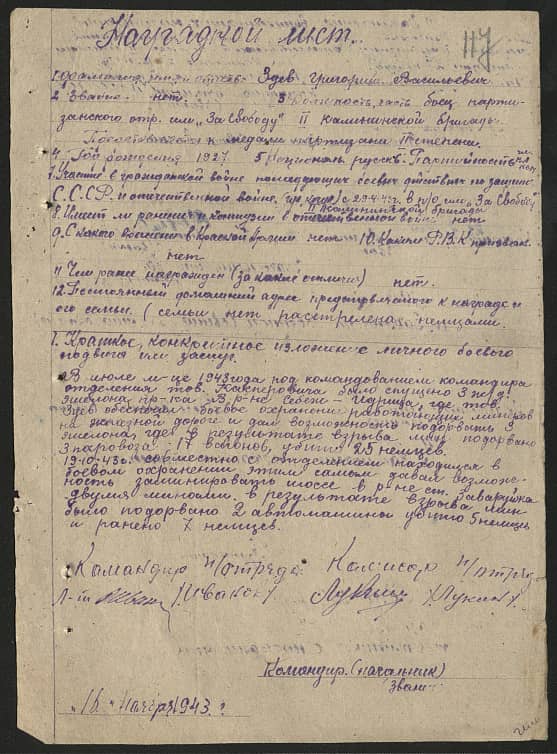 Наградной лист.
117
1. Фамилия, имя и отчество Эдев Григорий Васильевич
2 Звание нет 3 Должность, часть боец парти-
занского отр. им. „За Свободу" II Калининской бригады.
Представляется к медали партизану II степени.
4 Год рождения 1927. 5 Националь. русск. Партийность
7. Участие в гражданской войне последующих боевых действиях по защите
С.С.С.Р. и отечественной войне, где когда) с 29.4.42 г. в п/о им. „За Свободу"
II Калининской бригады
8. Имеет ли ранения и контузии в отечественной войне нет.
9. С какого времени в Красной Армии нет 10. Каким Р.В.К призван.
нет.
11 Чем ранее награжден (за какие отличия) нет.
12. Постоянный домашний адрес представляемого к награде и
его семьи. (семьи нет растрелена немцами
1. Краткое, конкретное изложение личного боевого
подвига или заслуг.
В июле м-це 1943 года под командованием командира
отделения тов. Каспировича было спущено 3 ж/д.
эшелона пр-ка в р-не Себеж - Идрица, где тов.
Эдев обеспечил боевое охранение работающих минеров
на железной дороге и дал возможность подорвать 3
эшелона, где в результате взрыва мин подорвано
3 паровоза, 17 вагонов, убито 25 немцев.
19.10.43 г. совместно с отделением находился в
боевом охранении, этим самым давал возмож-
ность заминировать шоссе в р-не ст. Заваруйка
двумя минами. в результате взрыва мин
было подорвано 2 автомашины убито 5 немцев
и ранено 7 немцев.
Командир п/отряда Комисар п/отряда
Л-т /Иванов/ /Лукин/
Командир. (начальник)
Звание
„16" ноября 1943 г.